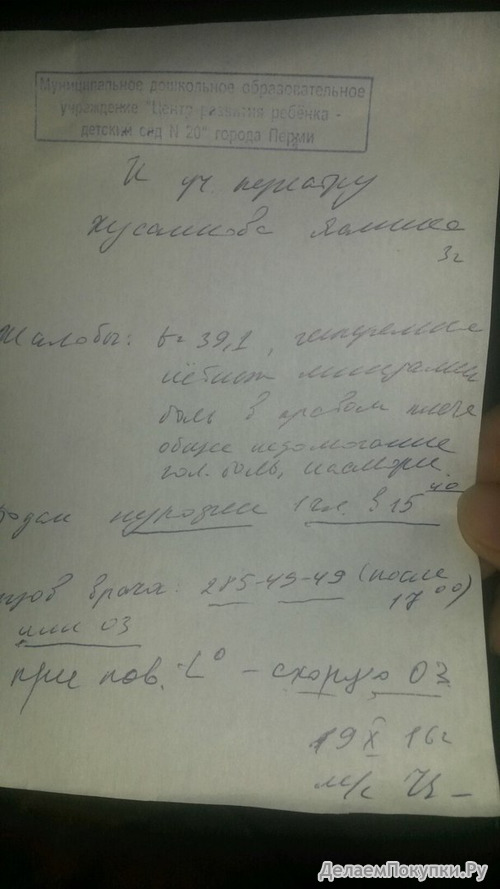 Муниципальное дошкольное образовательное
учреждение "Центр развития ребёнка -
детский сад N 20" города Перми
К уч. педиатру
Хусаинова
3г
Жалобы: t= 39,1, гиперемия
боль в правом плече
общее недомогание
гол. боль, насморк.
1 чл. в 15 40
врача: 285-49-49 (после
17 00)
или 03
при пов. t° - скорую 03
19 X 16г
м/с
ДелаемПокупки.Ру